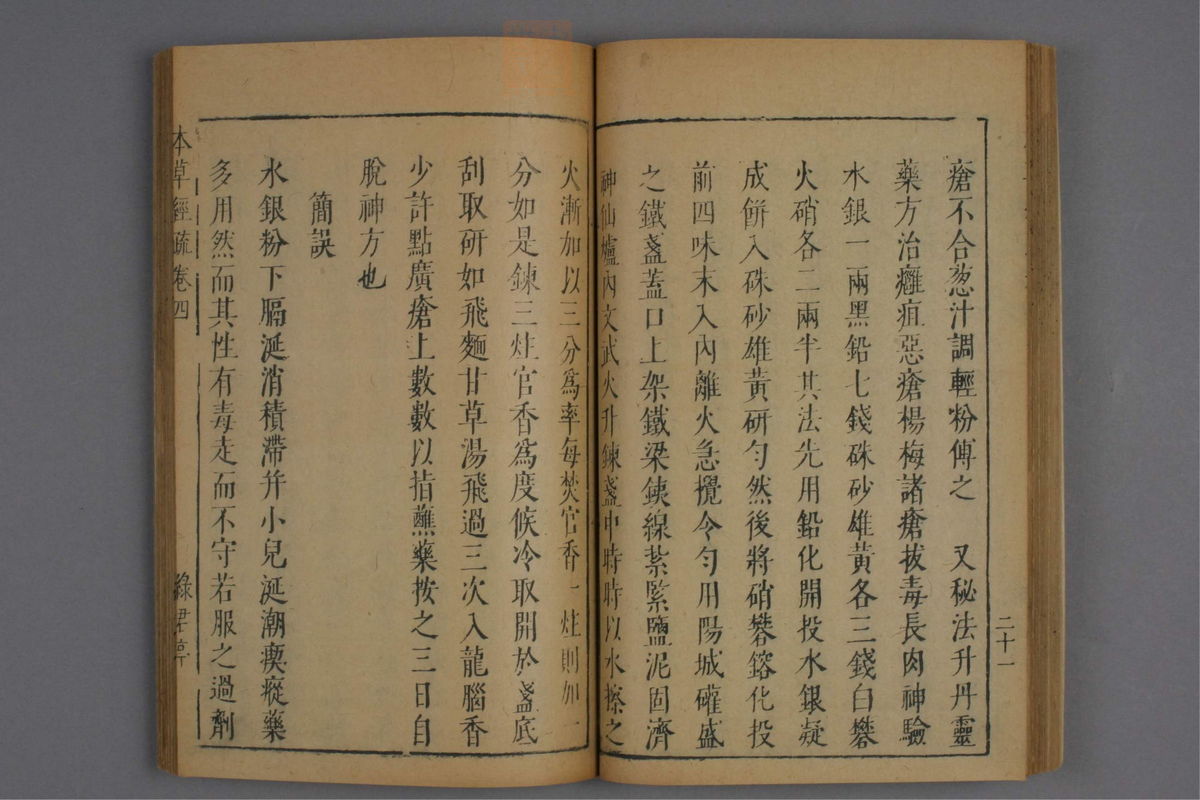 瘡不合葱汁調輕粉傅之　又秘法升丹靈
藥方治癰疽惡瘡楊梅諸瘡拔毒長肉神驗
水銀一兩黑鉛七錢硃砂雄黃各三錢白礬
火硝各二兩半其法先用鉛化開投水銀凝
成餅入硃砂雄黃研勻然後將硝礬鎔化投
前四味末入內離火急攪令勻用陽城礶盛
之鐵盞蓋口上架鐵梁鐵線紮緊鹽泥固濟
神仙爐內文武火升鍊盞中時時以水擦之
二十一
火漸加以三分爲率每焚官香一炷則加一
分如是鍊三炷官香爲度候冷取開於盞底
刮取研如飛麵甘草湯飛過三次入龍腦香
少許點廣瘡上數數以指蘸藥按之三日自
脫神方也
簡誤
水銀粉下膈涎消積滯并小兒涎潮瘈瘲藥
多用然而其性有毒走而不守若服之過劑
本草經疏卷四
綠君亭